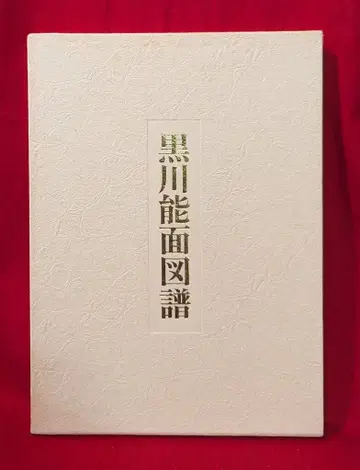 黒川能面図譜